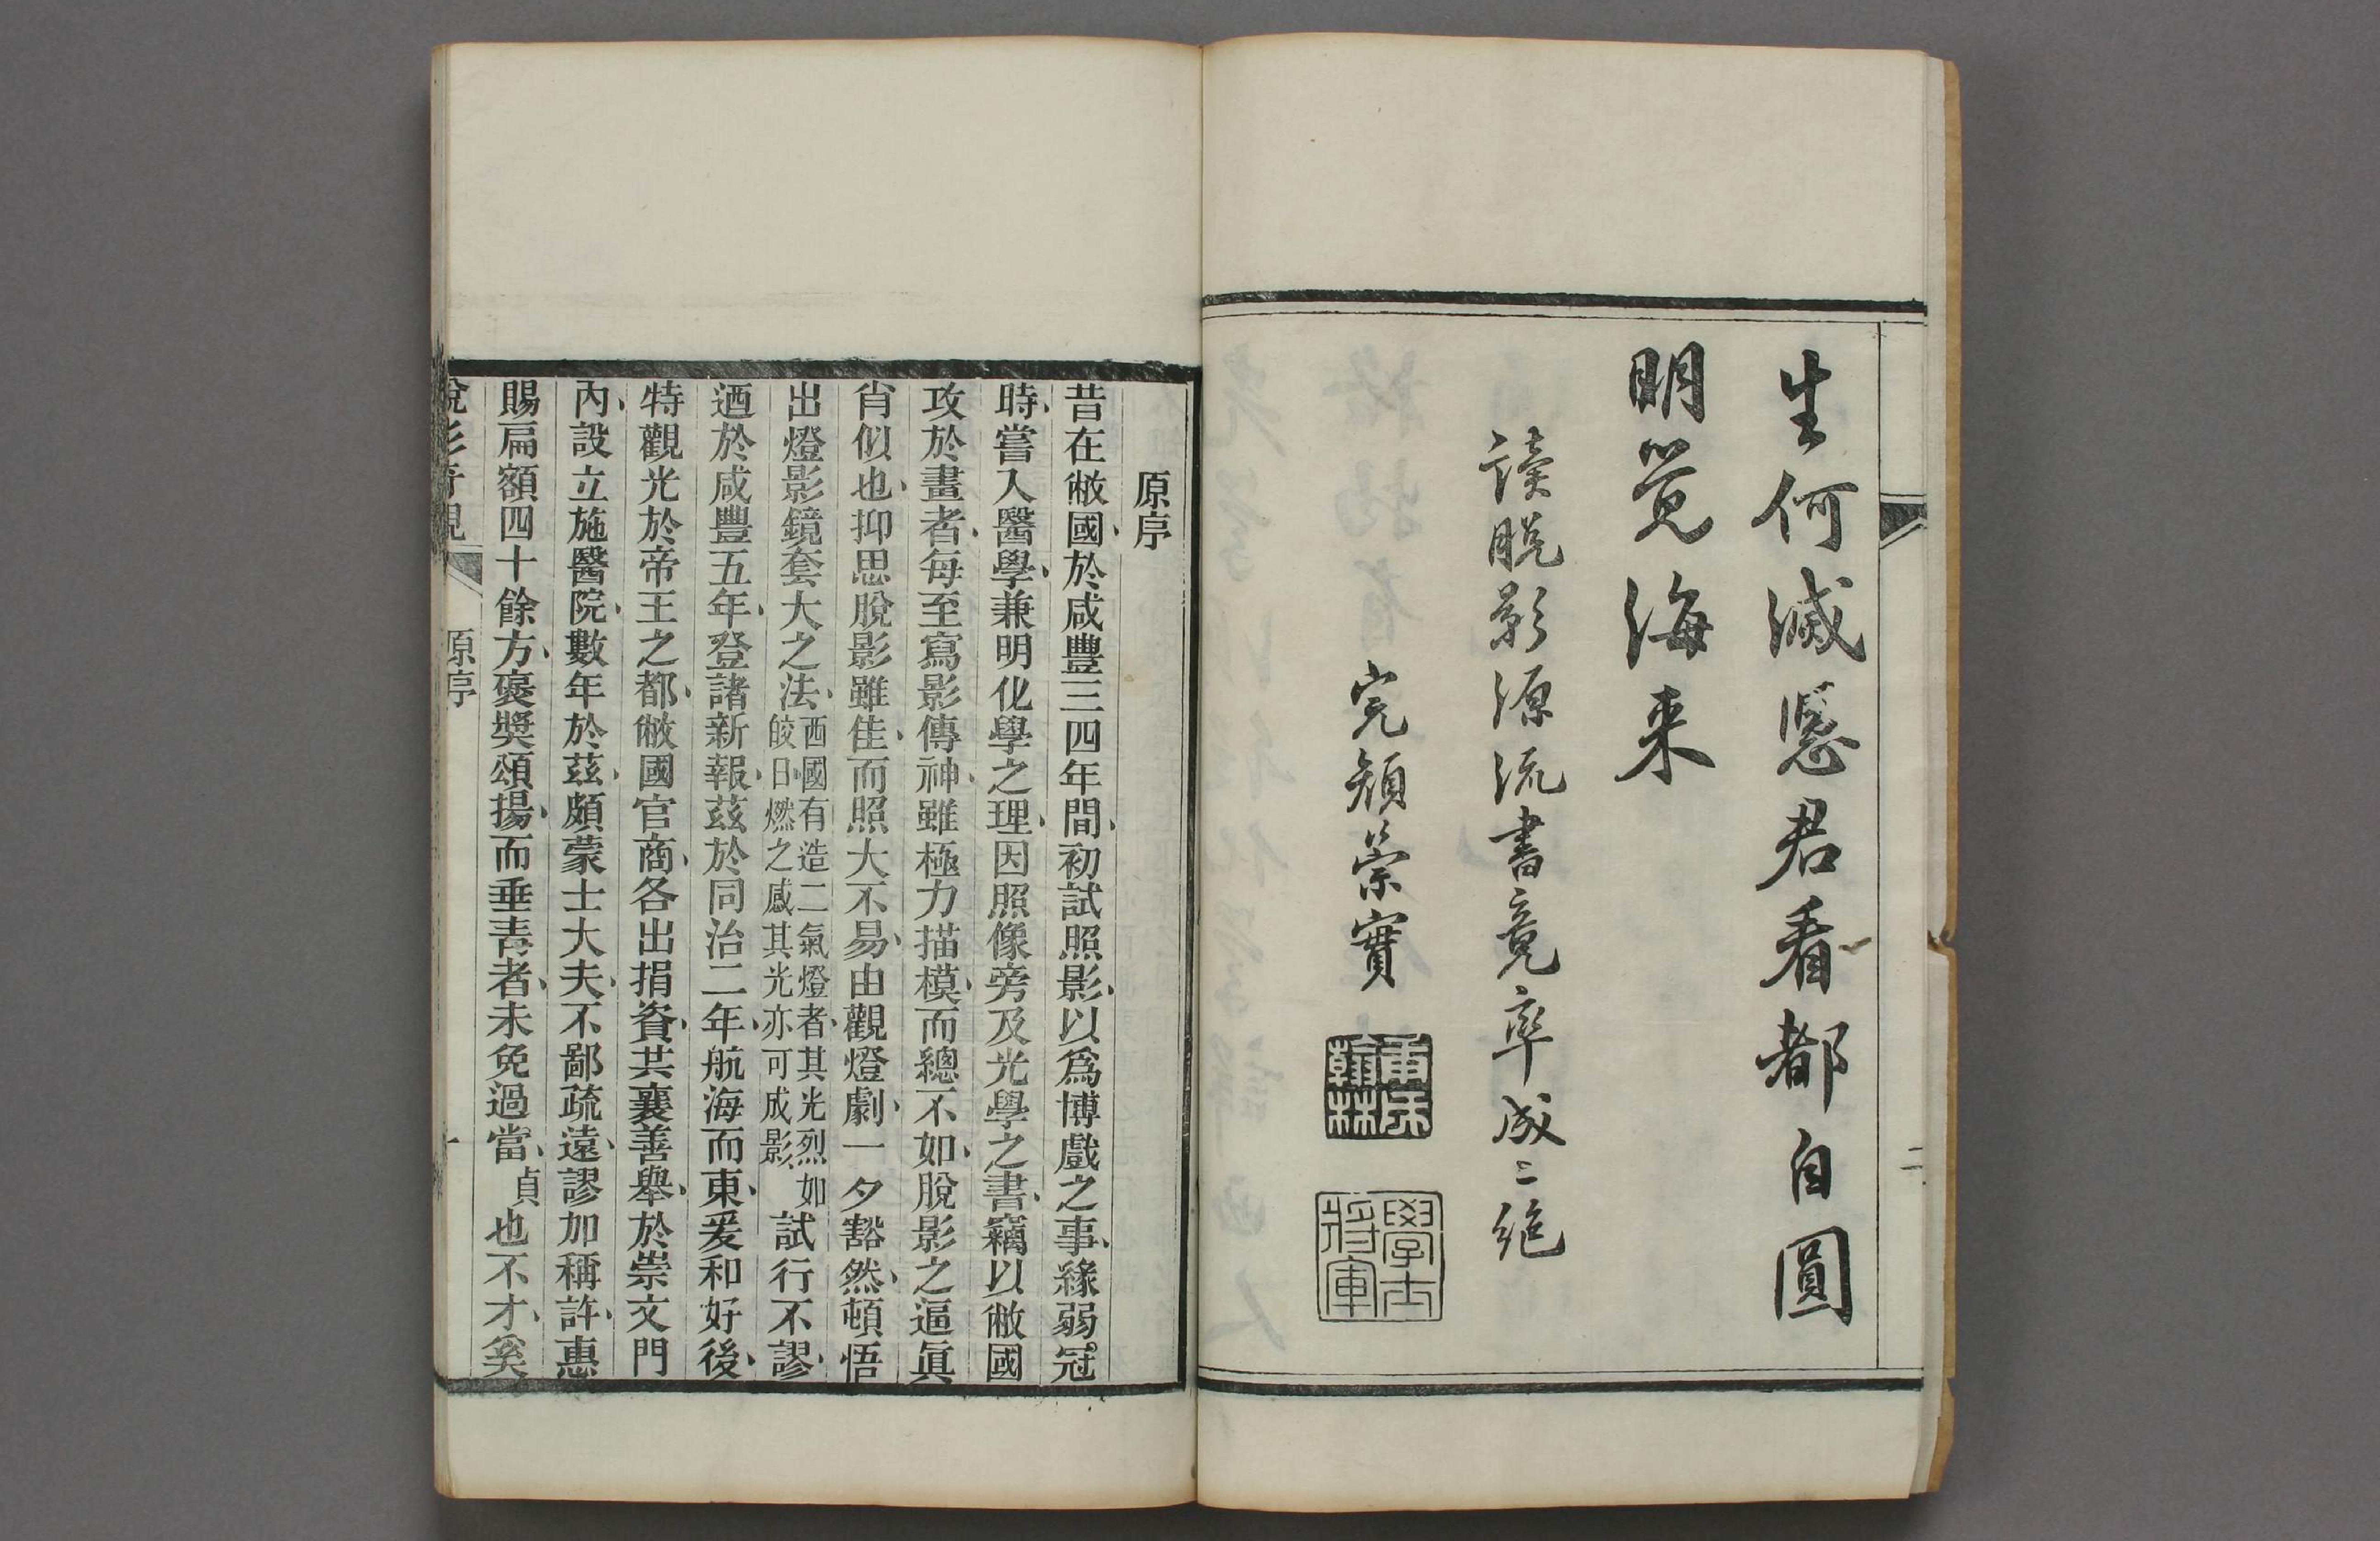 生何滅憑君看都自圓
明覺海来
讀脱影源流書竟率成二絶
完顔崇實
庚戌翰林
學士將軍
二
原序
昔在敝國於咸豐三四年間初試照影以爲博戲之事緣弱冠
時嘗入醫學兼明化學之理因照像旁及光學之書竊以敝國
攻於畫者每至寫影傳神雖極力描模而總不如脫影之逼眞
肖似也抑思脫影雖佳而照大不易由觀燈劇一夕豁然頓悟
出燈影鏡套大之法西國有造二氣燈者其光烈如皎日燃之感其光亦可成影試行不謬
迺於咸豐五年登諸新報茲於同治二年航海而東爰和好後
特觀光於帝王之都敝國官商各出捐資共襄善舉於崇文門
內設立施醫院數年於茲頗蒙士大夫不鄙疏遠謬加稱許惠
賜扁額四十餘方褒獎頌揚而垂青者未免過當貞也不才奚
脫影奇觀
原序
一